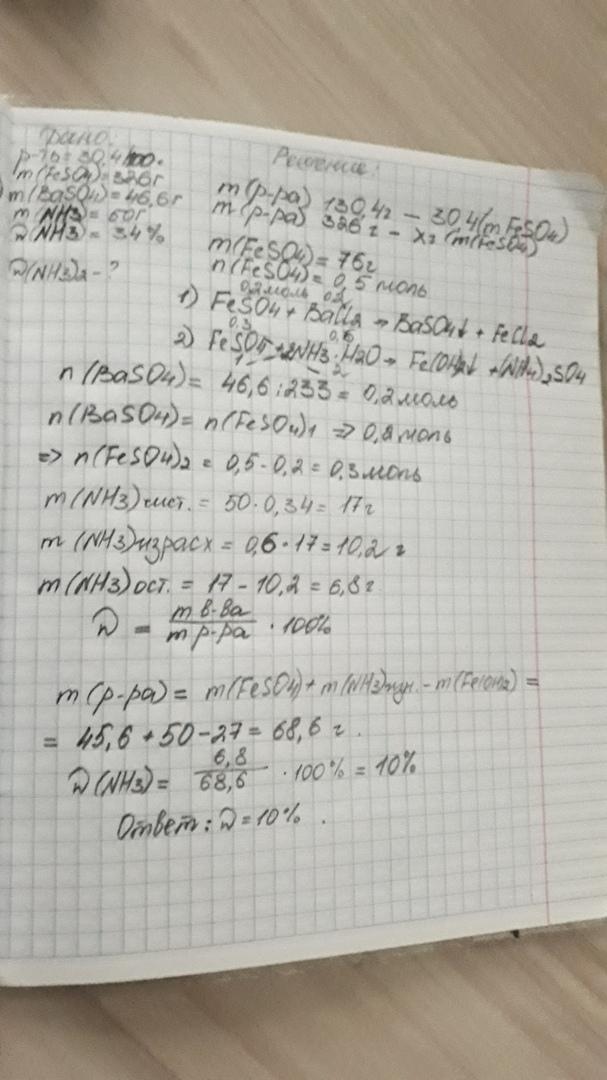 Дано:
р-ть = 30,4/100.
m(FeSO4) = 326г
m(BaSO4) = 46,6г
m(NH3) = 50г
ω(NH3) = 34%
ω(NH3)2 - ?
Решение:
m(р-ра) 130,4г – 30,4(m FeSO4)
m(р-ра) 326г – x г (m(FeSO4)
m(FeSO4) = 76г
n(FeSO4) = 0,5 моль
0,2моль 0,2
1) FeSO4 + BaCl2 → BaSO4↓ + FeCl2
0,3 0,6
2) FeSO4 + 2NH3·H2O → Fe(OH)2↓ + (NH4)2SO4
1 2
n(BaSO4) = 46,6 : 233 = 0,2моль
n(BaSO4) = n(FeSO4)1 ⇒ 0,2моль
⇒ n(FeSO4)2 = 0,5 - 0,2 = 0,3моль
m(NH3)чист. = 50·0,34 = 17г
m (NH3)израсх = 0,6·17 = 10,2 г
m(NH3)ост. = 17 – 10,2 = 6,8г
ω = m в-ва / m р-ра · 100%
m(р-ра) = m(FeSO4) + m(NH3) - m(Fe(OH)2) =
= 45,6 + 50 – 27 = 68,6 г.
ω(NH3) = 6,8 / 68,6 · 100% = 10%
Ответ: ω = 10% .